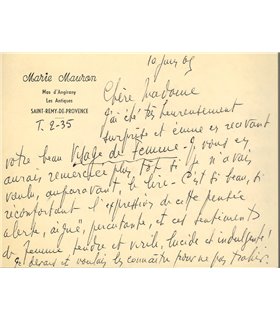 Marie Mauron
Mas d'Angirany
Les Antiques
SAINT-REMY-DE-PROVENCE
T. 2-35
10 juin 65
Chère Madame
j'ai été très heureusement
surprise et émue en recevant
votre beau Visage de femme. Je vous en
aurais remerciée plus tôt si je n'avais
voulu, auparavant, le lire. C'est si beau, si
réconfortant l'expression de cette pensée
alerte, aiguë, percutante, et ces sentiments
de femme tendre et virile, lucide et indulgente!
Je devais et voulais les connaître pour ne pas trahir